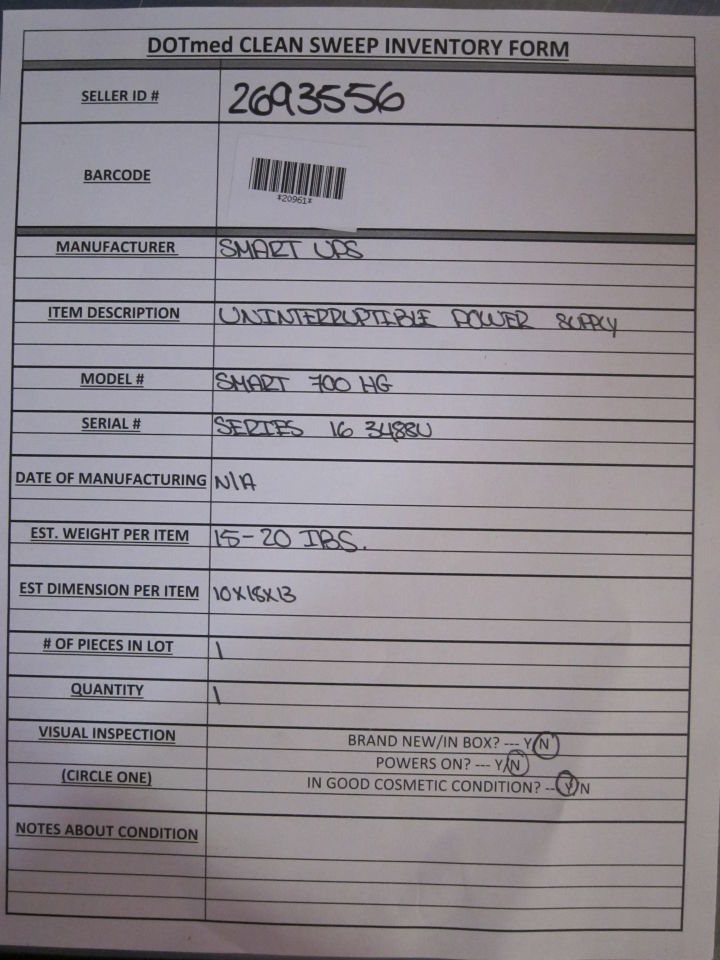 DOTmed CLEAN SWEEP INVENTORY FORM
SELLER ID # 2693556
BARCODE
*20961*
MANUFACTURER SMART UPS
ITEM DESCRIPTION UNINTERRUPTIBLE POWER SUPPLY
MODEL # SMART 700 HG
SERIAL # SERIES 16 3488U
DATE OF MANUFACTURING N/A
EST. WEIGHT PER ITEM 15-20 IBS.
EST DIMENSION PER ITEM 10X18X13
# OF PIECES IN LOT 1
QUANTITY 1
VISUAL INSPECTION BRAND NEW/IN BOX? --- Y/N
POWERS ON? --- Y/N
(CIRCLE ONE) IN GOOD COSMETIC CONDITION? -- Y/N
NOTES ABOUT CONDITION